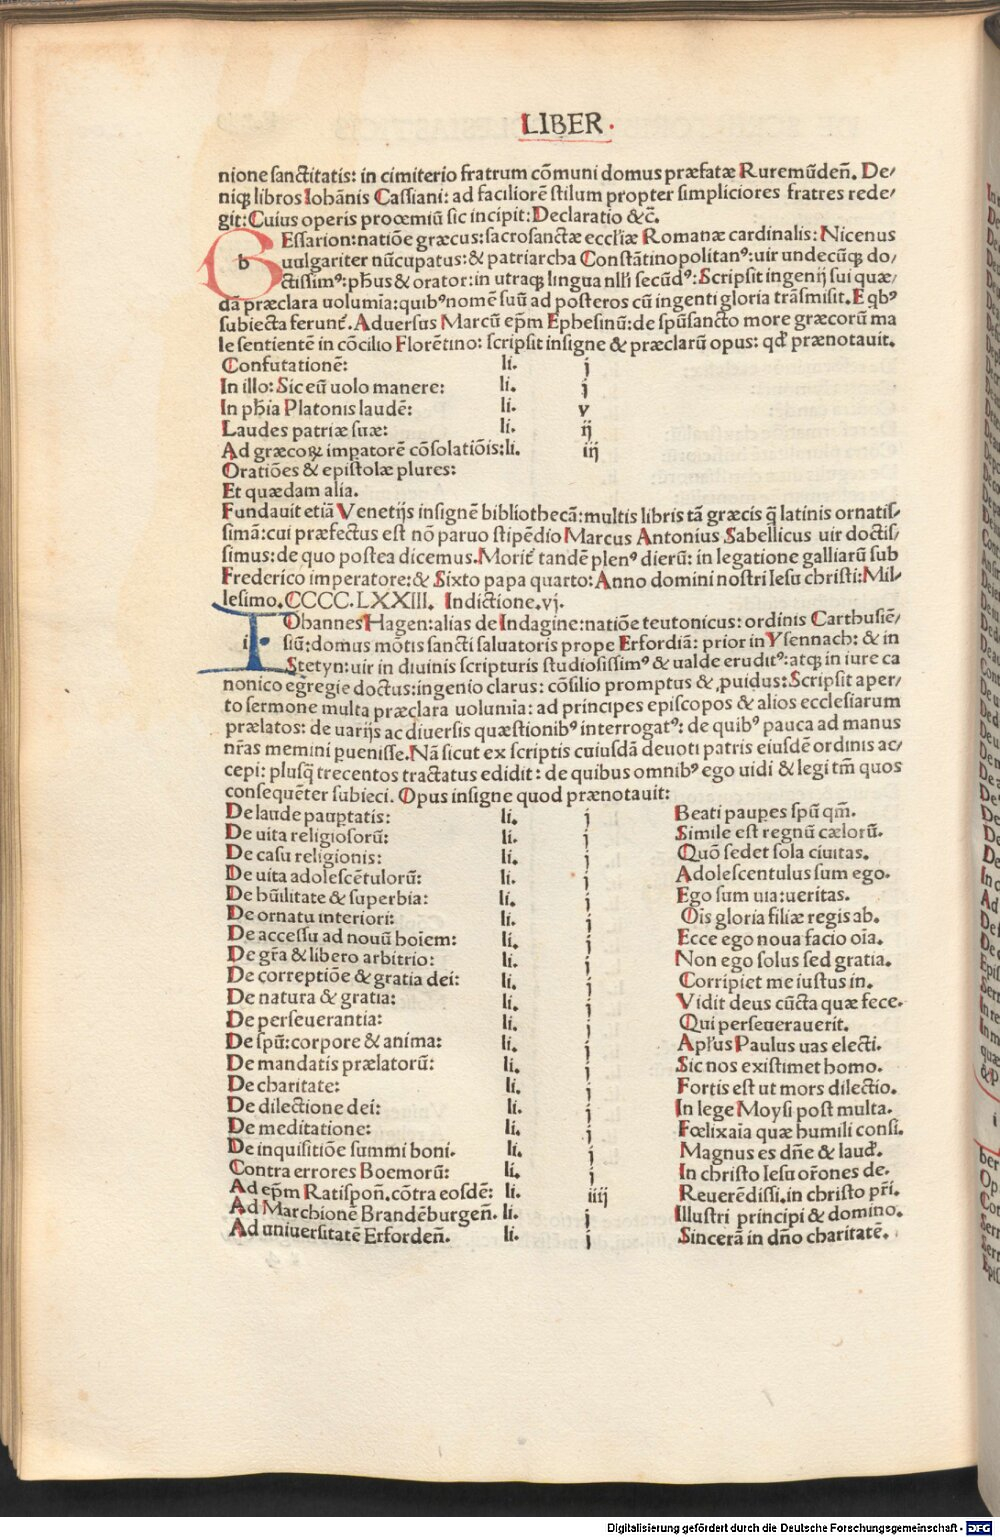 LIBER
nione sanctitatis: in cimiterio fratrum cõmuni domus præfatæ Ruremũdeñ. De/
niqꝫ libros Iohãnis Cassiani: ad faciliorẽ stilum propter simpliciores fratres rede/
git: Cuius operis procemiũ sic incipit: Declaratio &c̃.
b
Essarion: natiõe græcus: sacrosanctæ eccl̃iæ Romanæ cardinalis: Nicenus
uulgariter nũcupatus: & patriarcha Constãtinopolitanꝰ: uir undecũqꝫ do/
ctissimꝰ: ph̃us & orator: in utraqꝫ lingua nll̃i secũdꝰ: Scripsit ingenij sui quæ/
dã præclara uolumia: quibꝰ nomẽ suũ ad posteros cũ ingenti gloria trãsmisit. E qbꝰ
subiecta ferunt̃. Aduersus Marcũ ep̃m Ephesinũ: de sp̃usancto more græcorũ ma
le sentientẽ in cõcilio Florẽtino: scripsit insigne & præclarũ opus: qd̃ prænotauit.
Confutationẽ: li. j
In illo: Sic eũ uolo manere: li. j
In ph̃ia Platonis laudẽ: li. v
Laudes patriæ suæ: li. ij
Ad græcoꝝ imꝑatorẽ cõsolatiõis: li. iij
Oratiões & epistolæ plures:
Et quædam alia.
Fundauit etiã Venetijs insignẽ bibliothecã: multis libris tã græcis q̃ latinis ornatis/
simã: cui præfectus est nõ paruo stipẽdio Marcus Antonius Sabellicus uir doctis/
simus: de quo postea dicemus. Morit̃ tandẽ plenꝰ dierũ: in legatione galliarũ sub
Frederico imperatore: & Sixto papa quarto: Anno domini nostri Iesu christi: Mil/
lesimo. CCCC. LXXIII. Indictione. vj.
i
Ohannes Hagen: alias de Indagine: natiõe teutonicus: ordinis Carthusiẽ/
siũ: domus mõtis sancti saluatoris prope Erfordiã: prior in Ysennach: & in
Stetyn: uir in diuinis scripturis studiosissimꝰ & ualde eruditꝰ: atqꝫ in iure ca
nonico egregie doctus: ingenio clarus: cõsilio promptus & ꝓuidus: Scripsit aper/
to sermone multa præclara uolumia: ad principes episcopos & alios ecclesiarum
prælatos: de uarijs ac diuersis quæstionibꝰ interrogatꝰ: de quibꝰ pauca ad manus
nr̃as memini ꝑuenisse. Nã sicut ex scriptis cuiusdã deuoti patris eiusdẽ ordinis ac/
cepi: plusq̃ trecentos tractatus edidit: de quibus omnibꝰ ego uidi & legi tm̃ quos
consequẽter subieci. Opus insigne quod prænotauit:
De laude pauꝑtatis: li. j Beati pauꝑes sp̃u qm̃.
De uita religiosorũ: li. j Simile est regnũ cælorũ.
De casu religionis: li. j Quõ sedet sola ciuitas.
De uita adolescẽtulorũ: li. j Adolescentulus sum ego.
De hũilitate & superbia: li. j Ego sum uia: ueritas.
De ornatu interiori: li. j Õis gloria filiæ regis ab.
De accessu ad nouũ hoiem: li. j Ecce ego noua facio oĩa.
De gr̃a & libero arbitrio: li. j Non ego solus sed gratia.
De correptiõe & gratia dei: li. j Corripiet me iustus in.
De natura & gratia: li. j Vidit deus cũcta quæ fece.
De perseuerantia: li. j Qui perseuerauerit.
De sp̃u: corpore & anima: li. j Apl̃us Paulus uas electi.
De mandatis prælatorũ: li. j Sic nos existimet homo.
De charitate: li. j Fortis est ut mors dilectio.
De dilectione dei: li. j In lege Moysi post multa.
De meditatione: li. j Fœlix aĩa quæ humili consi.
De inquisitiõe summi boni. li. j Magnus es dñe & laud̃.
Contra errores Boemorũ: li. j In christo Iesu or̃ones de.
Ad ep̃m Ratispoñ. cõtra eosdẽ: li. iiij Reuerẽdissi. in christo pr̃i.
Ad Marchionẽ Brandẽburgeñ. li. j Illustri principi & domino.
Ad uniuersitatẽ Erfordeñ. li. j Sincerã in dño charitatẽ.
Digitalisierung gefördert durch die Deutsche Forschungsgemeinschaft - DFG